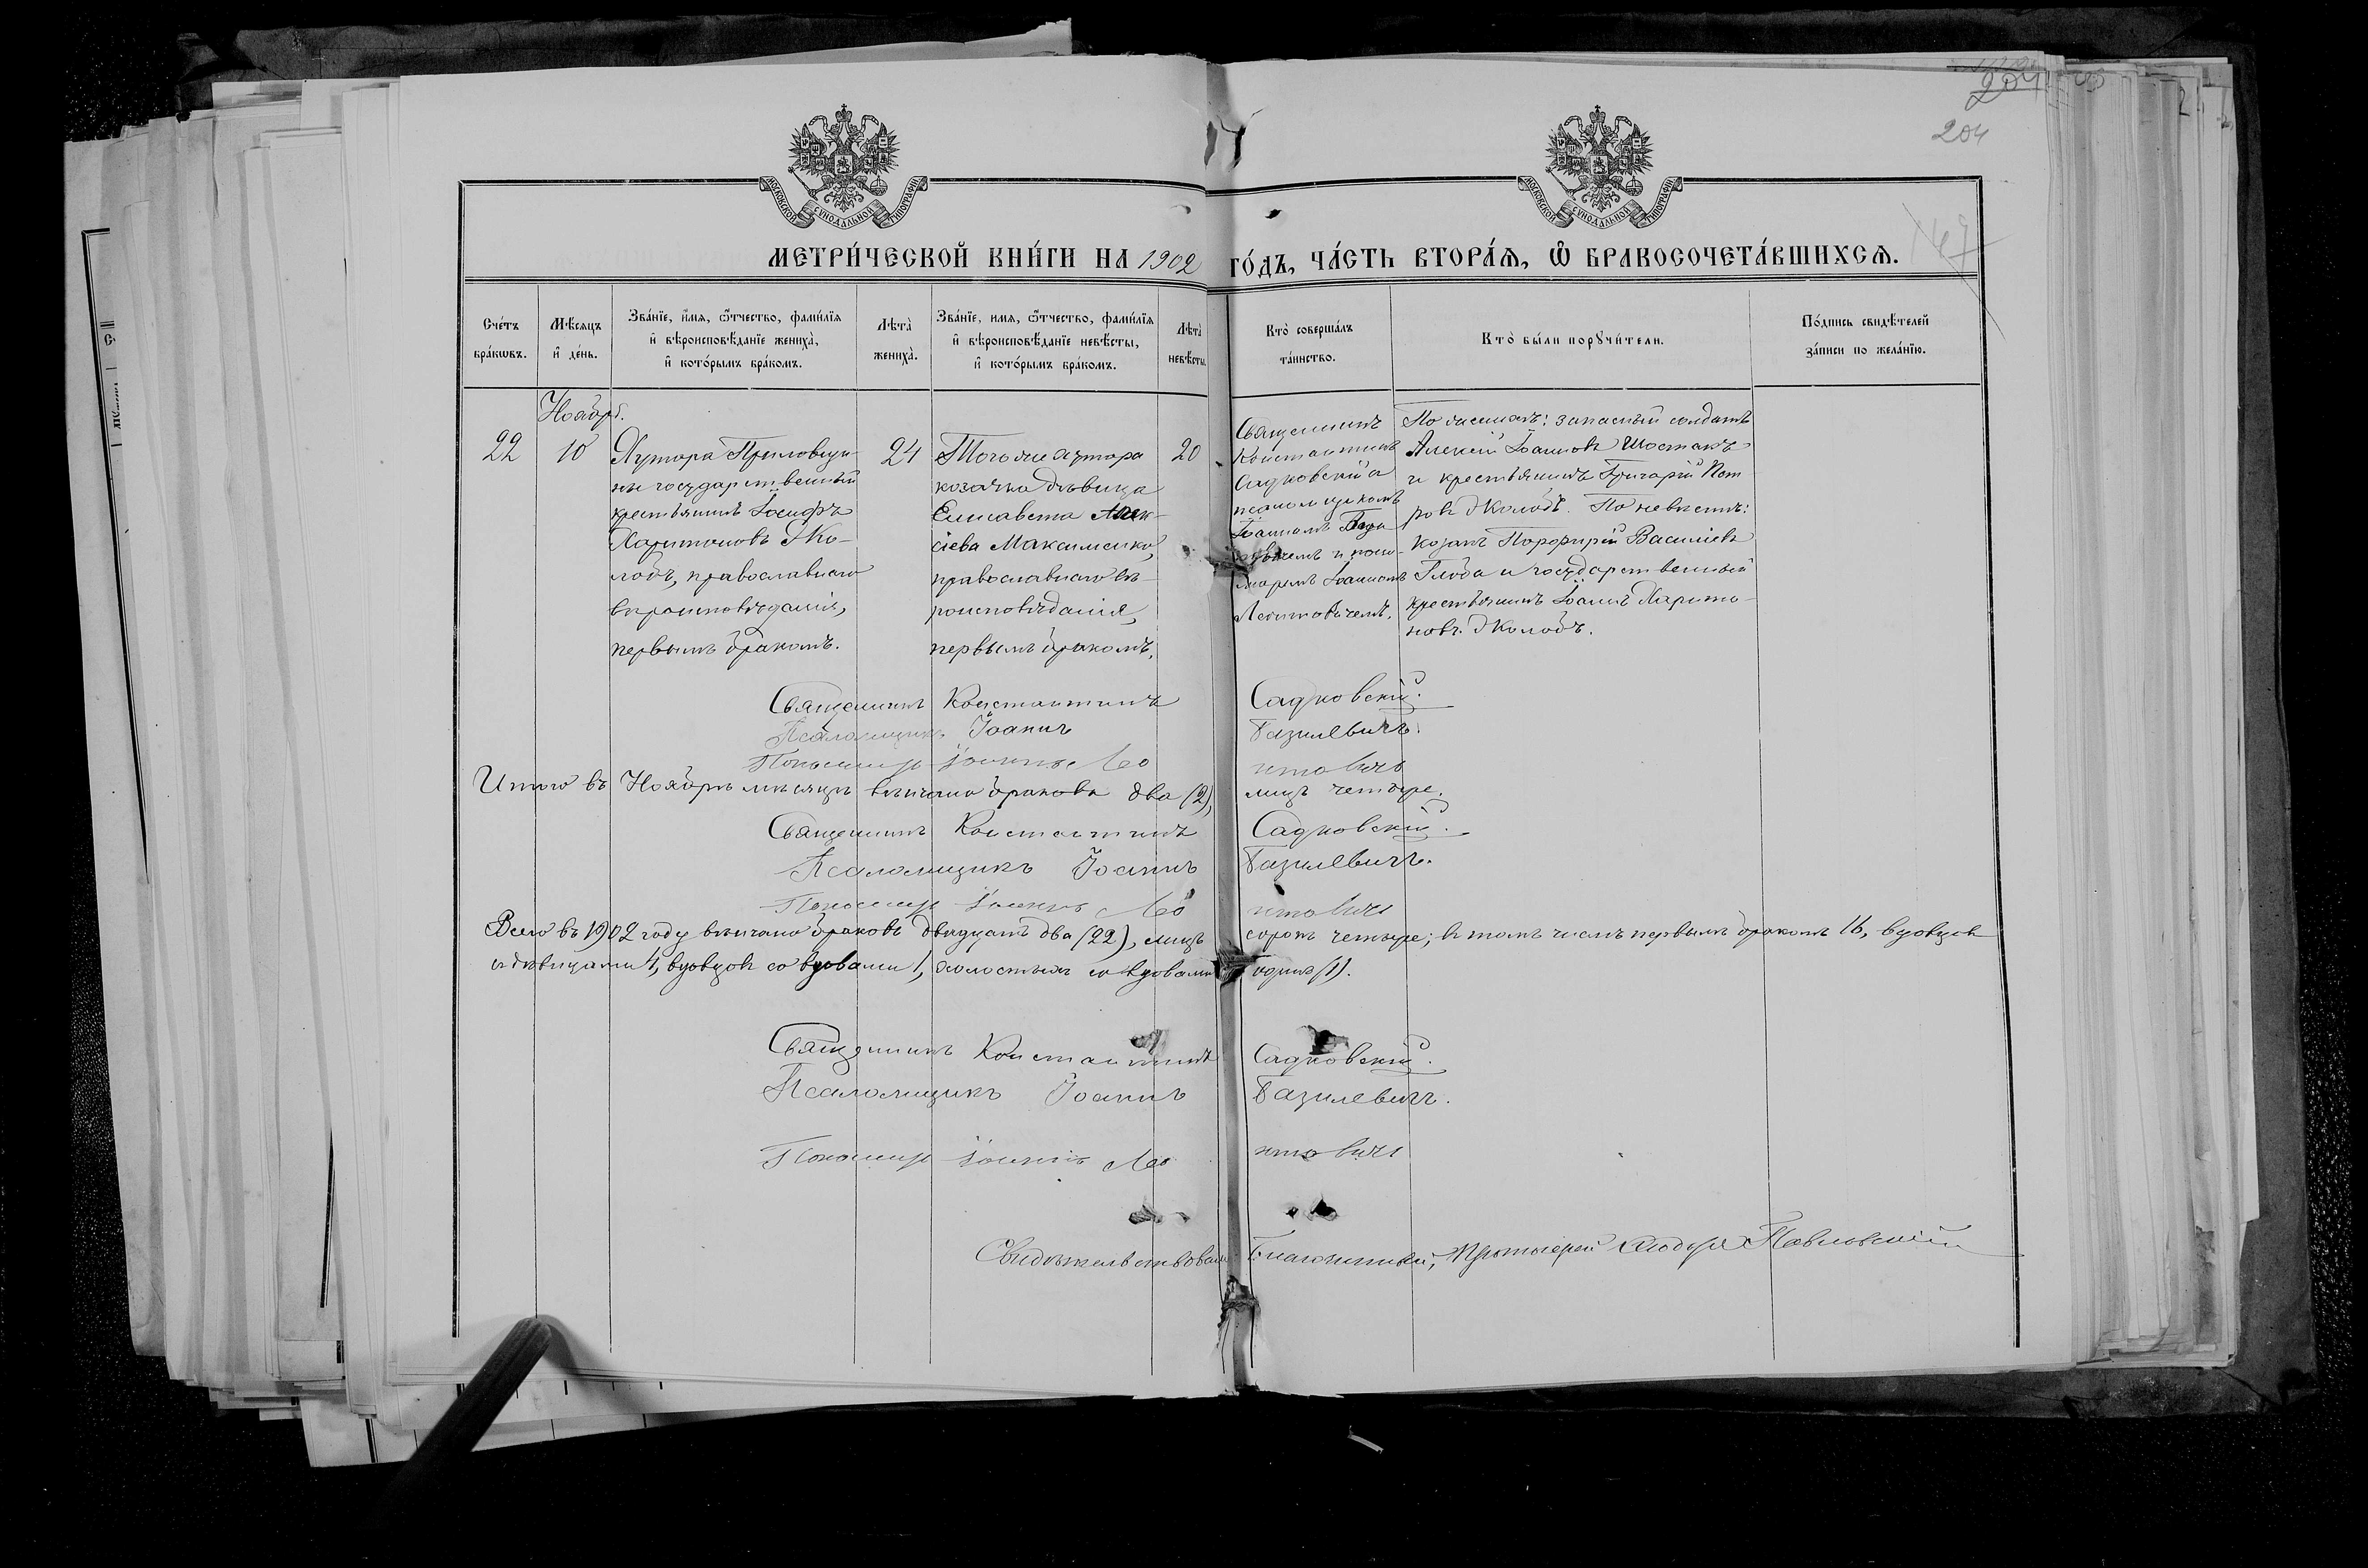 204
204
МОСКОВСКОЙ СУНОДАЛЬНОЙ ТИПОГРАФІИ
МОСКОВСКОЙ СУНОДАЛЬНОЙ ТИПОГРАФІИ
МЕТРИ́ЧЕСКОЙ КНИ́ГИ НА 1902 ГО́ДЪ, ЧА́СТЬ ВТОРА́Ѧ, Ѽ БРАКОСОЧЕТА́ВШИХСѦ.
Сче́тъ бра́кωвъ.
Мѣ́сяцъ и де́нь.
Зва́нїе, и́мѧ, ѻ́тчество, фами́лїѧ и вѣроисповѣ́данїе жениха̀, и кото́рымъ бра́комъ.
Лѣта̀ жениха̀.
Зва́нїе, имѧ, ѻ́тчество, фами́лїѧ и вѣроисповѣ́данїе невѣ́сты, и кото́рымъ бра́комъ.
Лѣта̀ невѣ́сты.
Кто̀ соверша́лъ та́инство.
Кто̀ бы́ли порꙋчи́тели.
По́дпись свидѣ́телей за́писи по жела́нїю.
Ноябрь.
22
10
Хутора Приловщи-
ны государственный
крестьянинъ Іосифъ
Харитоновъ Жко-
лобъ, православнаго
вѣроисповѣданія,
первымъ бракомъ.
24
Того же хутора
козачка дѣвица
Елисавета Алек-
сіева Максименко,
православнаго вѣ-
роисповѣданія,
первымъ бракомъ.
20
Священникъ
Константинъ
Садковскій а
псаломщикомъ
Іоанномъ Бази-
левичемъ и поно-
маремъ Іоанномъ
Леонтовичемъ.
По женихѣ: запасный солдатъ
Алексій Іоанновъ Шостакъ
и крестьянинъ Григорій Пет-
ровъ Жколобъ. По невѣстѣ:
козакъ Порфирій Василіевъ
Глоба и государственный
крестьянинъ Іоаннъ Харито-
новъ Жколобъ.
Священникъ Константинъ Садковскій.
Псаломщикъ Іоаннъ Базилевичъ.
Пономарь Іоаннъ Леонтовичъ
Итого въ Ноябрѣ мѣсяцѣ вѣнчано браковъ два (2), лицъ четыре.
Священникъ Константинъ Садковскій.
Псаломщикъ Іоаннъ Базилевичъ.
Пономарь Іоаннъ Леонтовичъ
Всего въ 1902 году вѣнчано браковъ двадцать два (22), лицъ сорокъ четыре; въ томъ числѣ первымъ бракомъ 16, вдовцов
съ дѣвицами 4, вдовцов со вдовами 1, холостыхъ со вдовами одинъ (1).
Священникъ Константинъ Садковскій.
Псаломщикъ Іоаннъ Базилевичъ.
Пономарь Іоаннъ Леонтовичъ
Свидѣтельствовалъ Благочинный, Протоіерей Павловскій